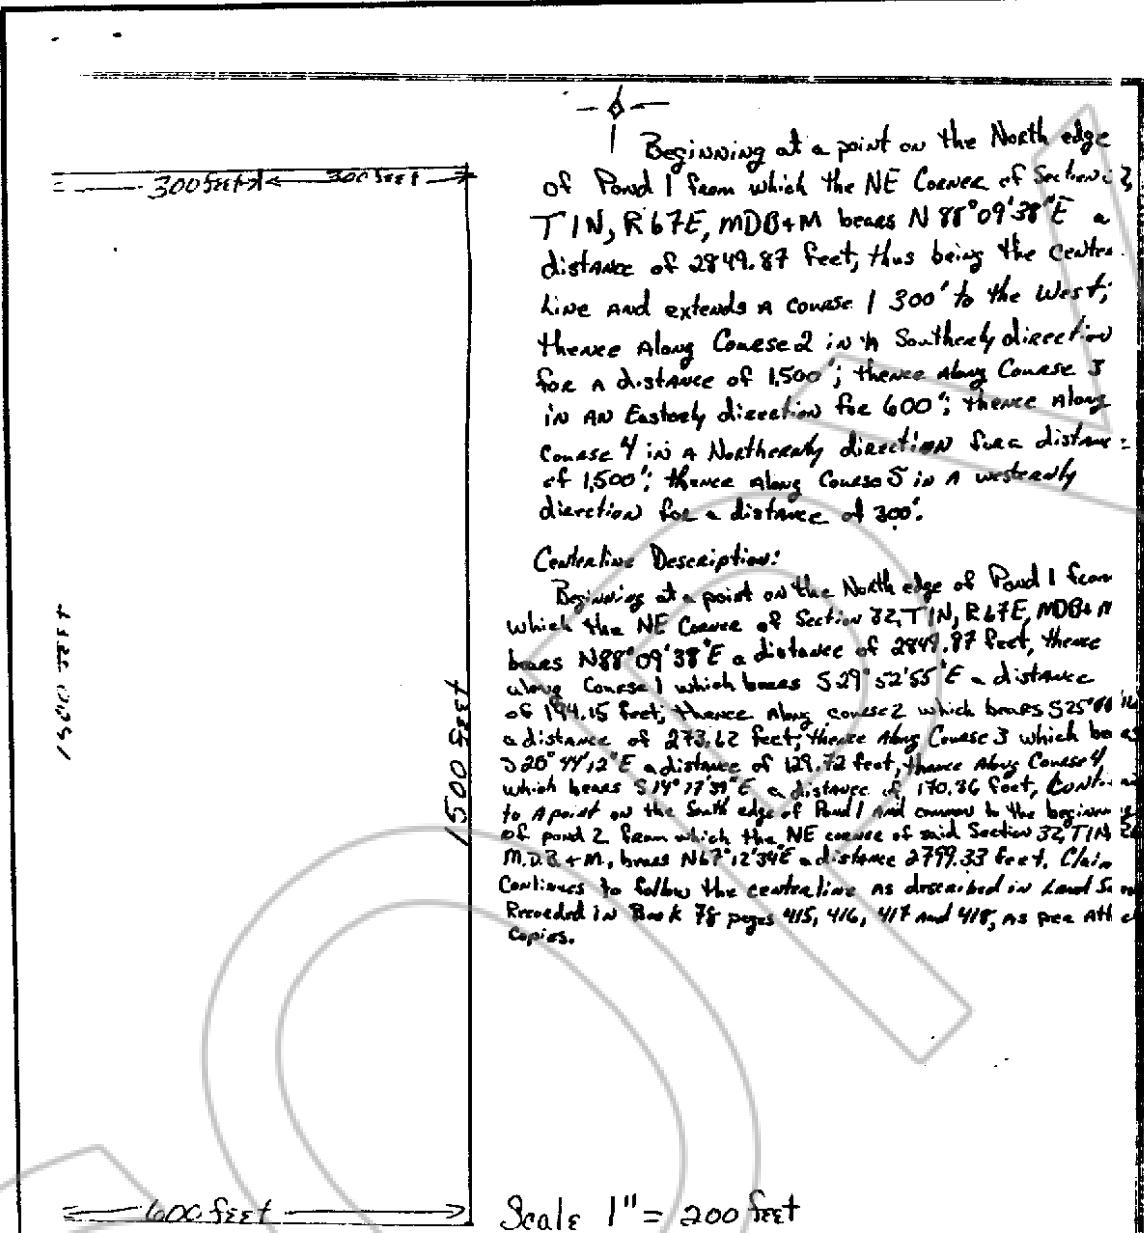 300 feet
300 feet
Beginning at a point on the North edge
of Pond 1 from which the NE Corner of Section 3
T1N, R67E, MDB+M bears N 88°09'38"E a
distance of 2849.87 feet, thus being the center
line and extends a course 1 300' to the West;
thence Along Course 2 in a Southerly direction
for a distance of 1,500'; thence Along Course 3
in AN Easterly direction for 600'; thence Along
Course 4 in a Northernly direction for a distance
of 1,500'; thence Along Course 5 in a westernly
direction for a distance of 300'.
Centerline Description:
Beginning at a point on the North edge of Pond 1 from
which the NE Corner of Section 32, T1N, R67E, MDB+M
bears N88°09'38"E a distance of 2849.87 feet, thence
along Course 1 which bears S29°52'55"E a distance
of 194.15 feet; thence Along course 2 which bears
a distance of 273.62 feet; thence Along Course 3 which bears
S20°44'12"E a distance of 129.72 feet, thence Along Course 4,
which bears E a distance of 170.36 feet,
to A point on the South edge of Pond 1 and common to the
of pond 2 from which the NE corner of said Section 32, T1N
M.D.B + M, bears N67°12'34"E a distance 2799.33 feet. Claim
Continues to follow the centerline as described in Land
Recorded in Book 78 pages 415, 416, 417 and 418, as per
Copies.
1500 feet
1500 feet
600 feet
Scale 1" = 200 feet